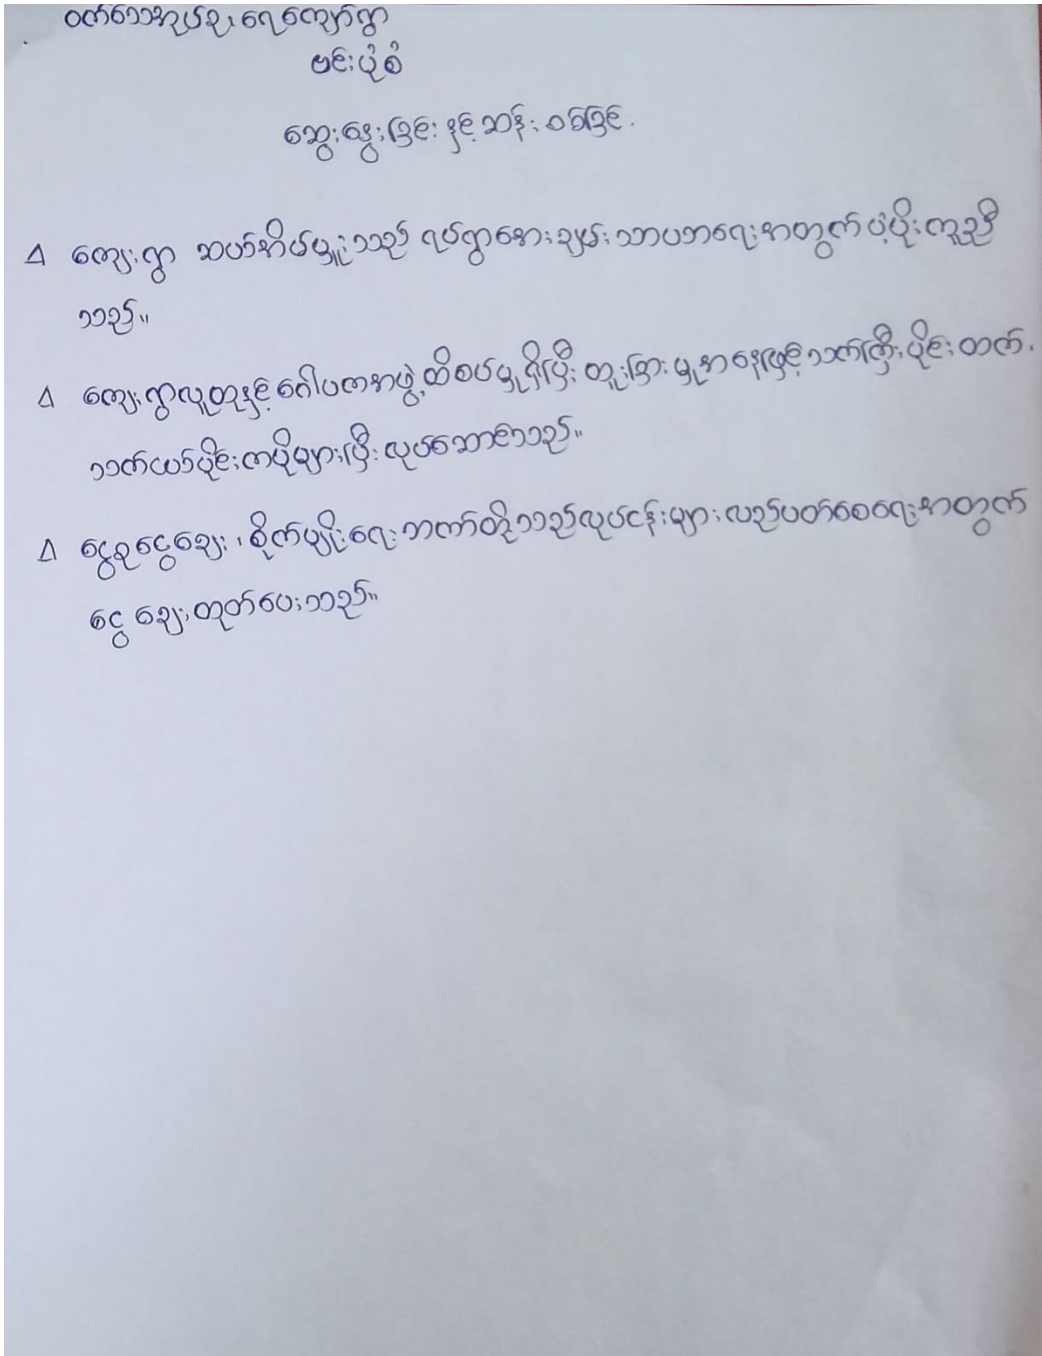 ဝက်သေအုပ်စု၊ ရေကျော်ရွာ
ဗင်းပုံစံ
ဆွေးနွေးခြင်း နှင့် ဆန်းစစ်ခြင်း
Δ ကျေးရွာ ဆပ်အိမ်မှူးသည် ရပ်ရွာအေးချမ်းသာယာရေးအတွက် ပံ့ပိုးကူညီ
သည်။
Δ ကျေးရွာလူထုနှင့် ဂေါပကအဖွဲ့ ထိစပ်မှုရှိပြီး ထူးခြားမှုအနေဖြင့် သက်ကြီးပိုင်း ထက်
သက်ငယ်ပိုင်းကပိုများပြီး လုပ်ဆောင်သည်။
Δ ငွေစုငွေချေး၊ စိုက်ပျိုးရေးဘဏ်တို့သည်လုပ်ငန်းများ လည်ပတ်စေရေးအတွက်
ငွေချေးထုတ်ပေးသည်။